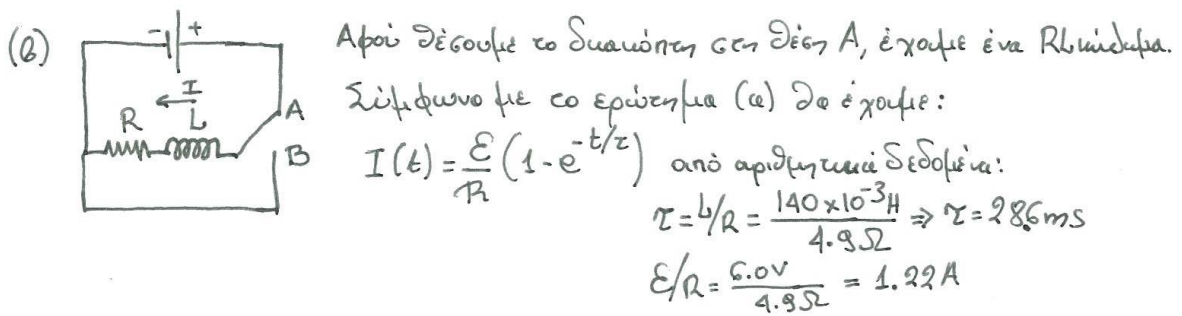 (β) - + Αφού θέσουμε το διακόπτη στη θέση Α, έχουμε ένα RL κύκλωμα.
I
R L A Σύμφωνα με το ερώτημα (α) θα έχουμε:
B I(t) = ℰ/R (1 - e^{-t/τ}) από αριθμητικά δεδομένα:
τ = L/R = 140 × 10^{-3} H / 4.9 Ω ⇒ τ = 28.6 ms
ℰ/R = 6.0 V / 4.9 Ω = 1.22 A